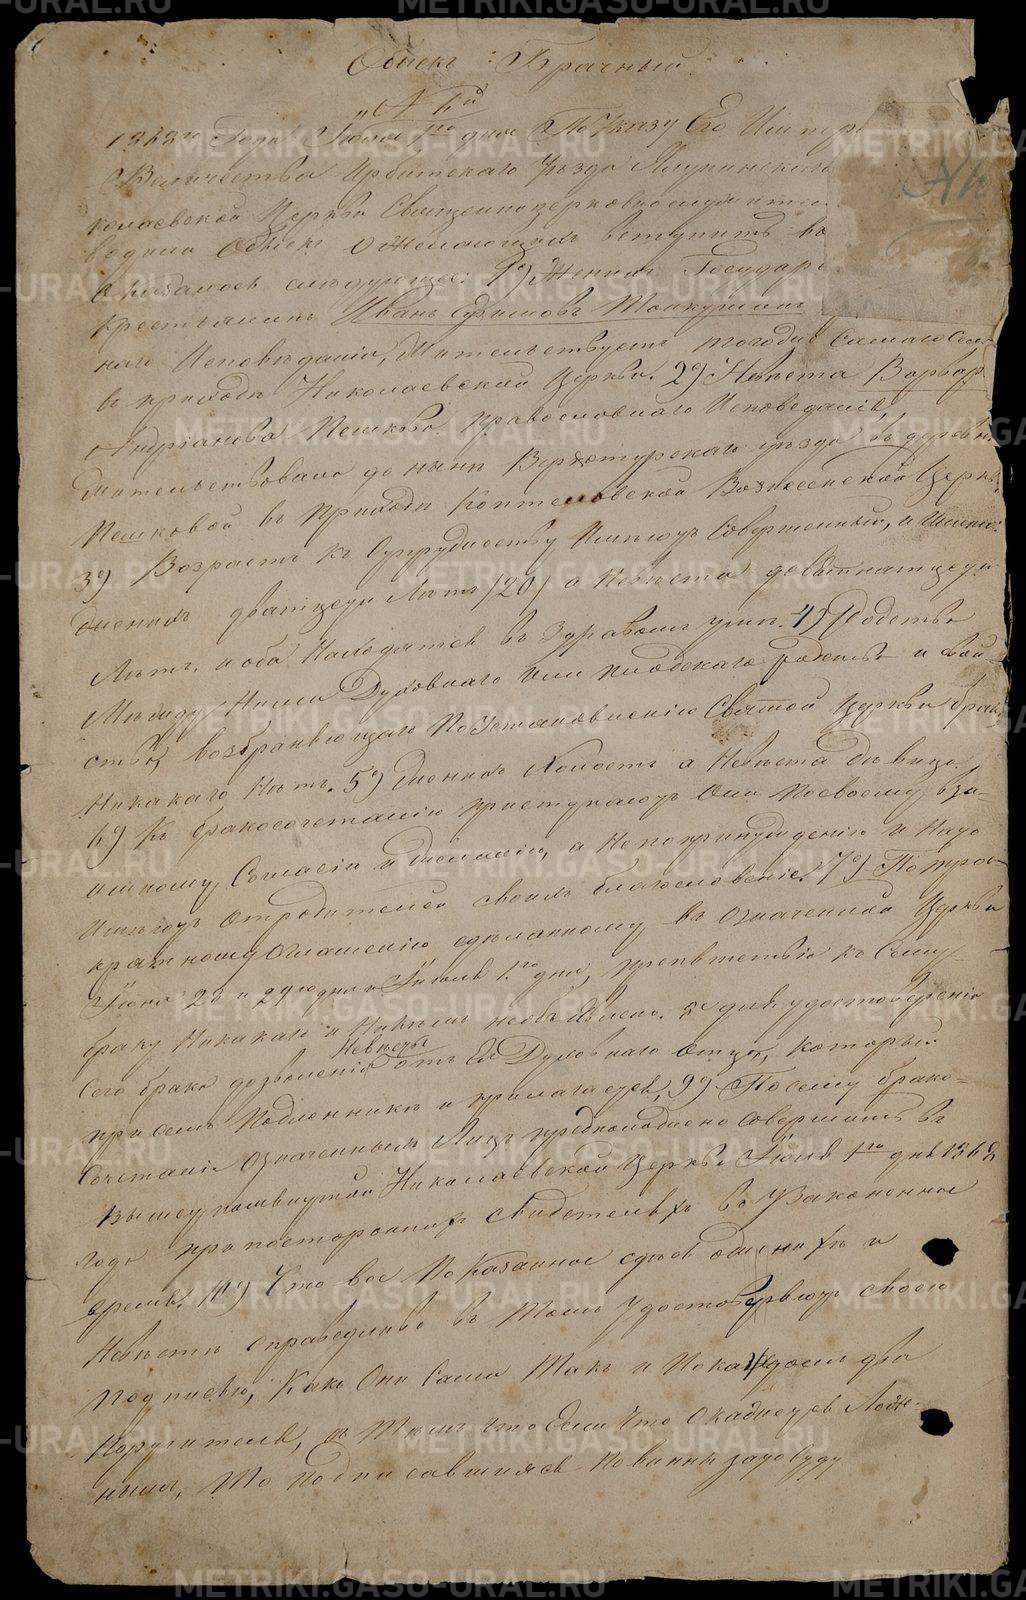 Обыскъ Брачный.
"№ 6й"
1868го Года Іюля 1го дня По Указу Его Импер
Величества Ирбитскаго Уѣзда
колаевской Церкви Священноцерковнослужители
водили Обыскъ о желающихъ вступить во
оказалось слѣдующее: 1е) Женихъ Государ
крестьянинъ Иванъ Ефимовъ
наго Исповѣданія, жительствуетъ самаго села
въ приходѣ Николаевской Церкви. 2е) Невѣста Варвар
Андріанова Пешкова Православнаго Исповеданія,
жительствовала до нынѣ Верхотурскаго уѣзда въ деревни
Пешковой въ Приходѣ Коптеловской Вознесенской Церкви.
3е) Возрастъ къ Супружеству Имѣютъ Совершенный, и Именно:
женихъ дватцети Лѣтъ /20/ а Невѣста девятнатцети
Лѣтъ, и оба Находятся въ Здравомъ умѣ. 4) Родства
Между Ними Духовнаго Или плотскаго родства и свой-
ства, возбраняющаго По установленію Святой Церкви бракъ
Никакаго Нѣтъ. 5е) Женихъ Холостъ а Невѣста дѣвица.
6е) Къ бракосочетанію приступаютъ Они По своему вза-
имному Согласію и Желанію, а Не по принужденію и На то
Имѣютъ отъ родителей своихъ благословеніе. 7е) По трое-
кратному Оглашенію сдѣланному въ Означенной Церкви
Іюня 23 и 29го дня и Іюля 1го дня, препятствія къ Сему
браку Никакаго и Никѣмъ не объявлено. 8е для удостоверенія
Сего брака дозволеніе Невѣсты отъ Ея Духовнаго Отца, Который
при семъ Подлинникѣ и прилагается, 9е) Посему брако-
Сочетаніе Означенныхъ Лицъ предположено совершить въ
вышеупомянутой Николаевской Церкви Іюля 1го дня 1868
года при постороннихъ свидетеляхъ въ Узаконенное
время. 10е) Что все Показанное здѣсь о женихѣ и
Невѣстѣ справедливо въ Томъ удостоверяютъ своею
подписью, Какъ Они Сами Такъ и По каждомъ два
Поручителя, съ Тѣмъ что Если Что Окажется Лож-
нымъ, То подписавшияся Повинны за то буду
METRIKI.GASO-URAL.RU